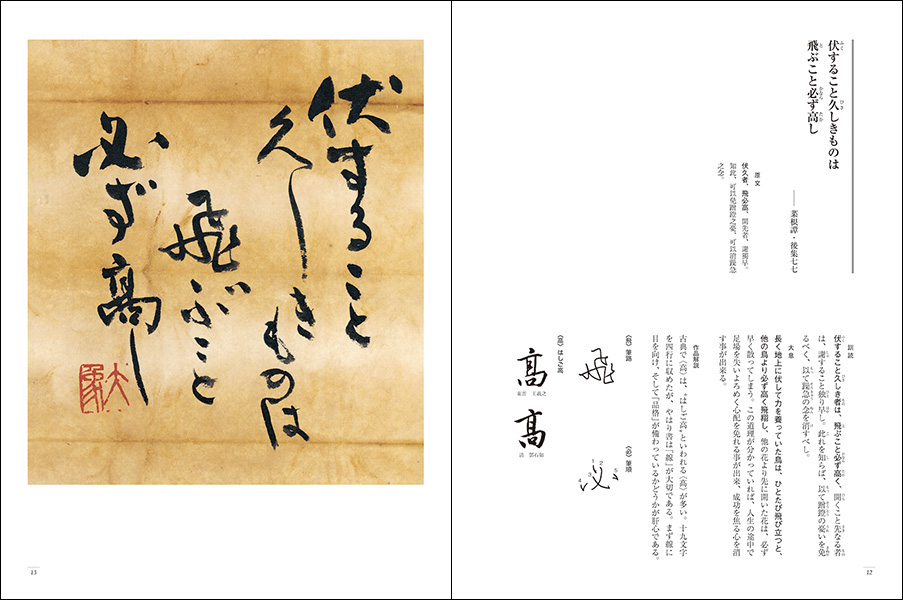 伏すること久しきものは
飛ぶこと必ず高し
――菜根譚・後集七七
原文
伏久者、飛必高、開先者、謝獨早。
知此、可以免蹭蹬之憂、可以消躁急
之念。
訓読
伏すること久しき者は、飛ぶこと必ず高く、開くこと先なる者
は、謝すること独り早し。此れを知らば、以て蹭蹬の憂いを免
るべく、以て躁急の念を消すべし。
大意
長く地上に伏して力を養っていた鳥は、ひとたび飛び立つと、
他の鳥より必ず高く飛翔し、他の花より先に開いた花は、必ず
早く散ってしまう。この道理が分かっていれば、人生の途中で
足場を失いよろめく心配を免れる事が出来、成功を焦る心を消
す事が出来る。
作品解説
古典で〈高〉は、“はしご高”といわれる〈髙〉が多い。十九文字
を四行に収めたが、やはり書は「線」が大切である。まず線に
目を向け、そして「品格」が備わっているかどうかが肝心である。
〈飛〉筆路
飛
〈必〉筆順
必
1 2 3 4 5
〈高〉はしご高
髙
東晋 王羲之
髙
12
伏すること
久しきものは
飛ぶこと
必ず髙し
13